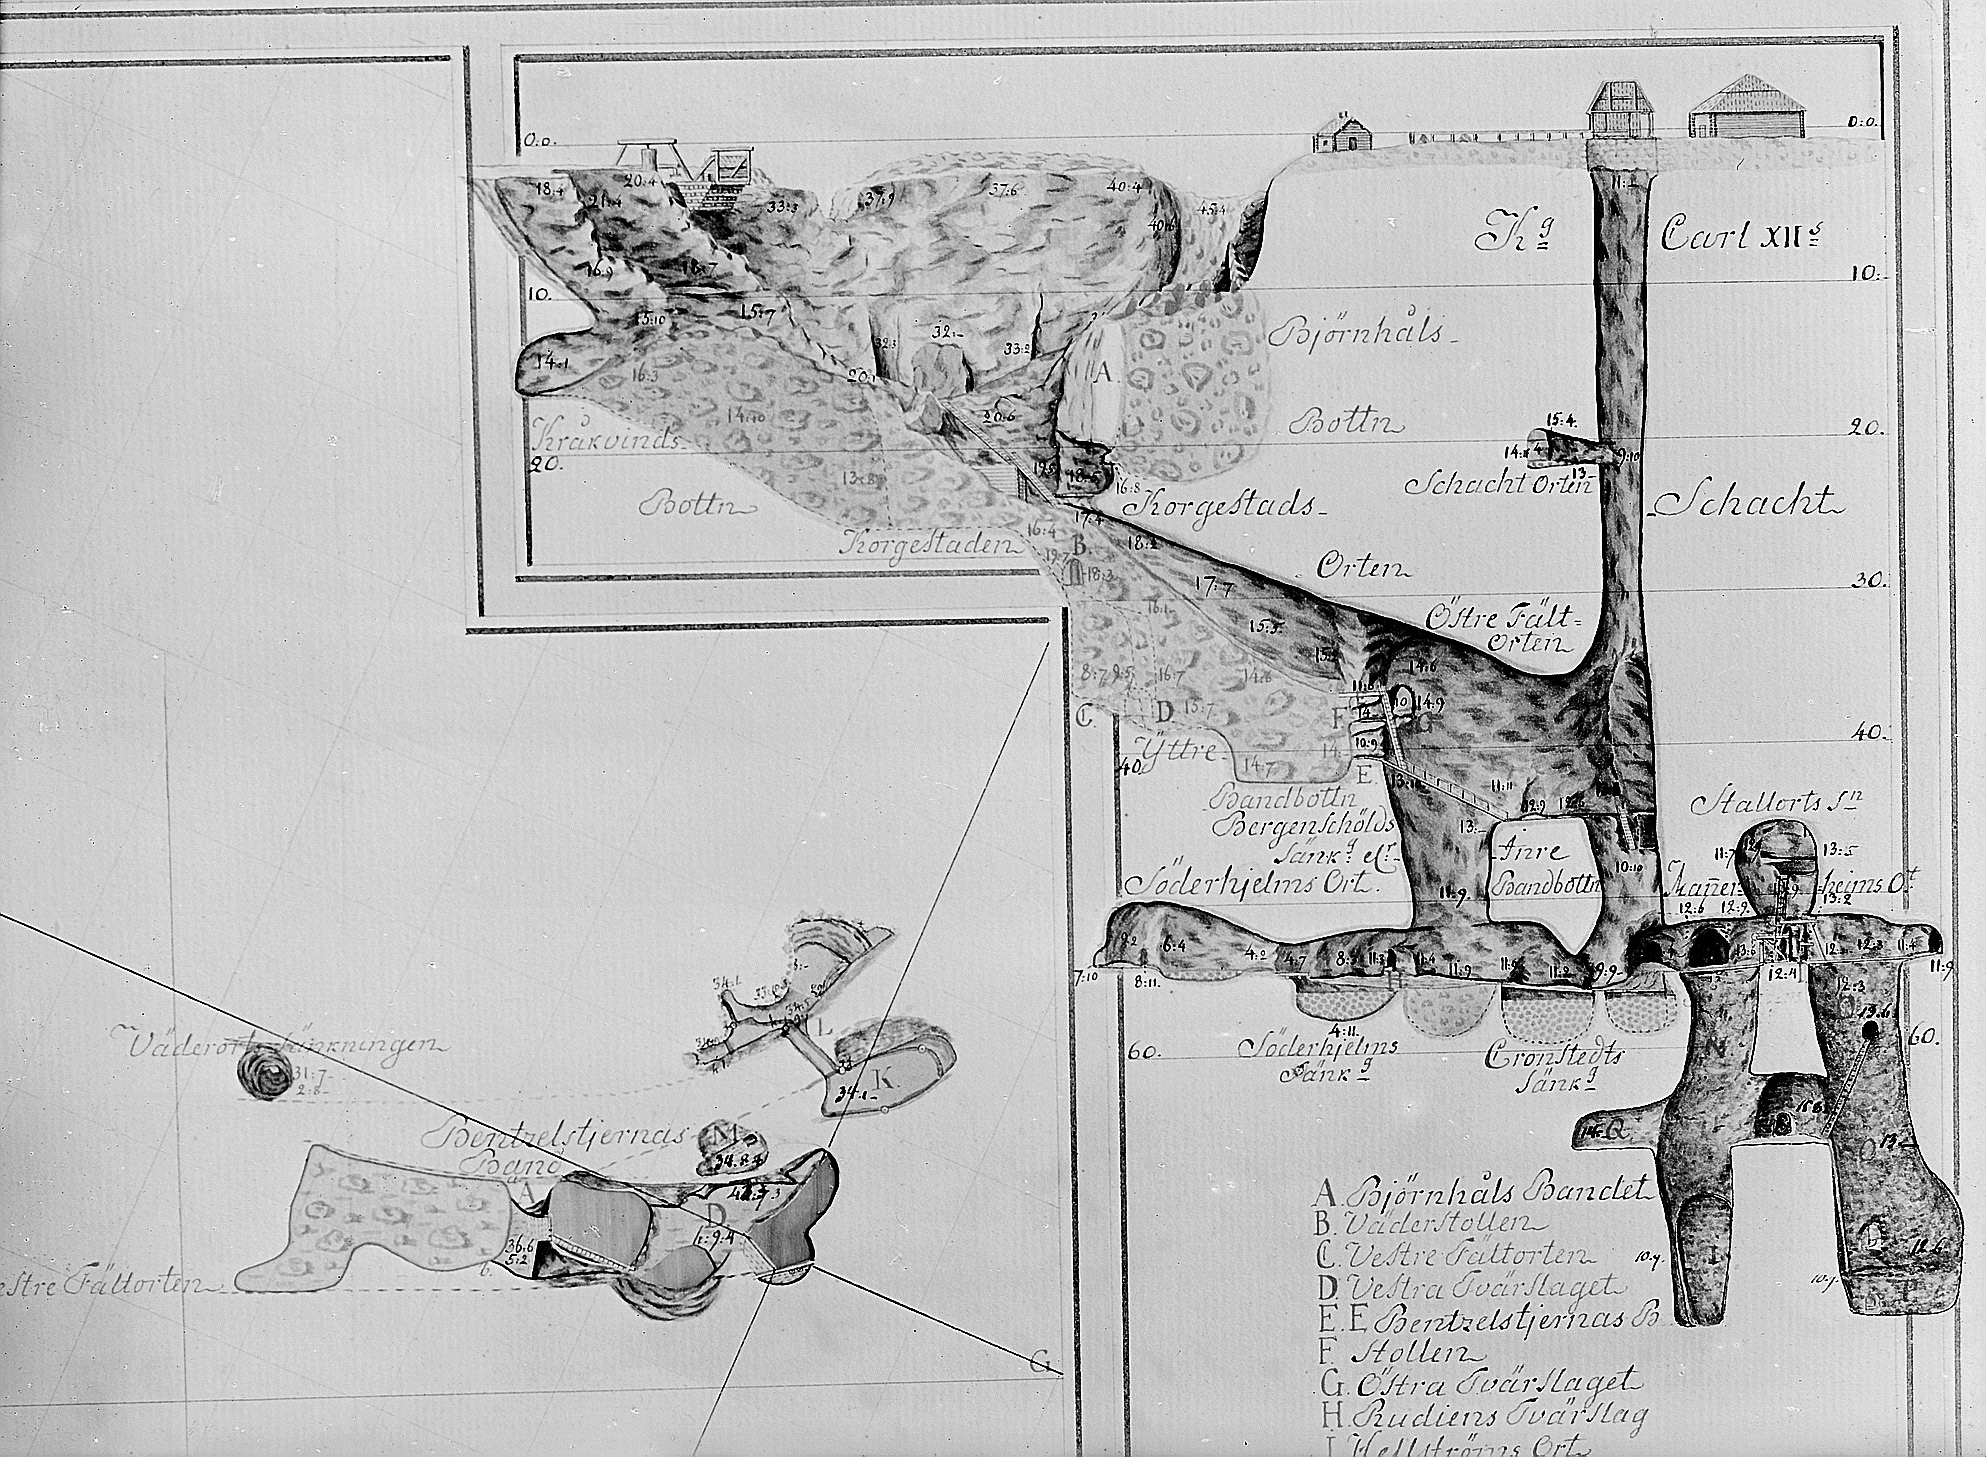 0:0.
0:0.
18:4
20:4
21:4
33:3
37:9
37:6
40:4
45:4
40:6
11:2
Kg Carl XIIs
16:9
18:7
10.
10:
15:10
15:7
32:3
32:-
33:2
Björnhåls-
14:1
16:3
20:1
A.
14:10
20:6
Bottn
15:4.
20.
Kråkvinds-
20.
13:8
19:5
18:5
16:8
14:4
9:10
13-
Schacht Orten
Bottn
Korgestads-
Schacht
17:4
Korgestaden
16:4
B.
18:2
19:7
18:3
Orten
17:7
30.
16:1
15:5.
Östre Fält=
Orten
8:7
9:5
16:7
14:8
14:6
11:6
10
14:9
C.
D.
15:7
F
G
40.
Yttre-
14.
10:9
40.
14:7
E
13:10
11:11
12:9
Bandbottn
Stallorts Sn
Bergenschölds
13:-
Sänkg: elr-
Inre
11:7
13:5
Söderhjelms Ort.
11:9.
Bandbottn
10:10
Mañer-heims Ort
12:6
12:9.
13:2
9:2
6:4
4:2
4:7
8:5
11:3
11:4
11:9
11:5
11:2
9:9-
13:6
12:3
11:4
7:10
8:11.
H
12:4
11:9
12:3
4:11.
60.
Söderhjelms
Sänkg
Cronstedts
Sänkg
13:6
60.
N
14:-
Q
O
13:-
10:7.
I
10:7.
12:6
P
34:1.
33:10
L
Väderorts sänkningen
31:7-
2:8-
K.
34:1-
Bentzelstjernas
Band
M
34:8
A
D
1:9:4
36:6
5:2
6.
estre Fältorten
G
A. Björnhåls Bandet
B. Väderstollen
C. Vestre Fältorten
D. Vestra Tvärslaget
E. E. Bentzelstjernas B
F. Stollen
G. Östra Tvärslaget
H. Rudiens Tvärslag
I. Hellströms Ort